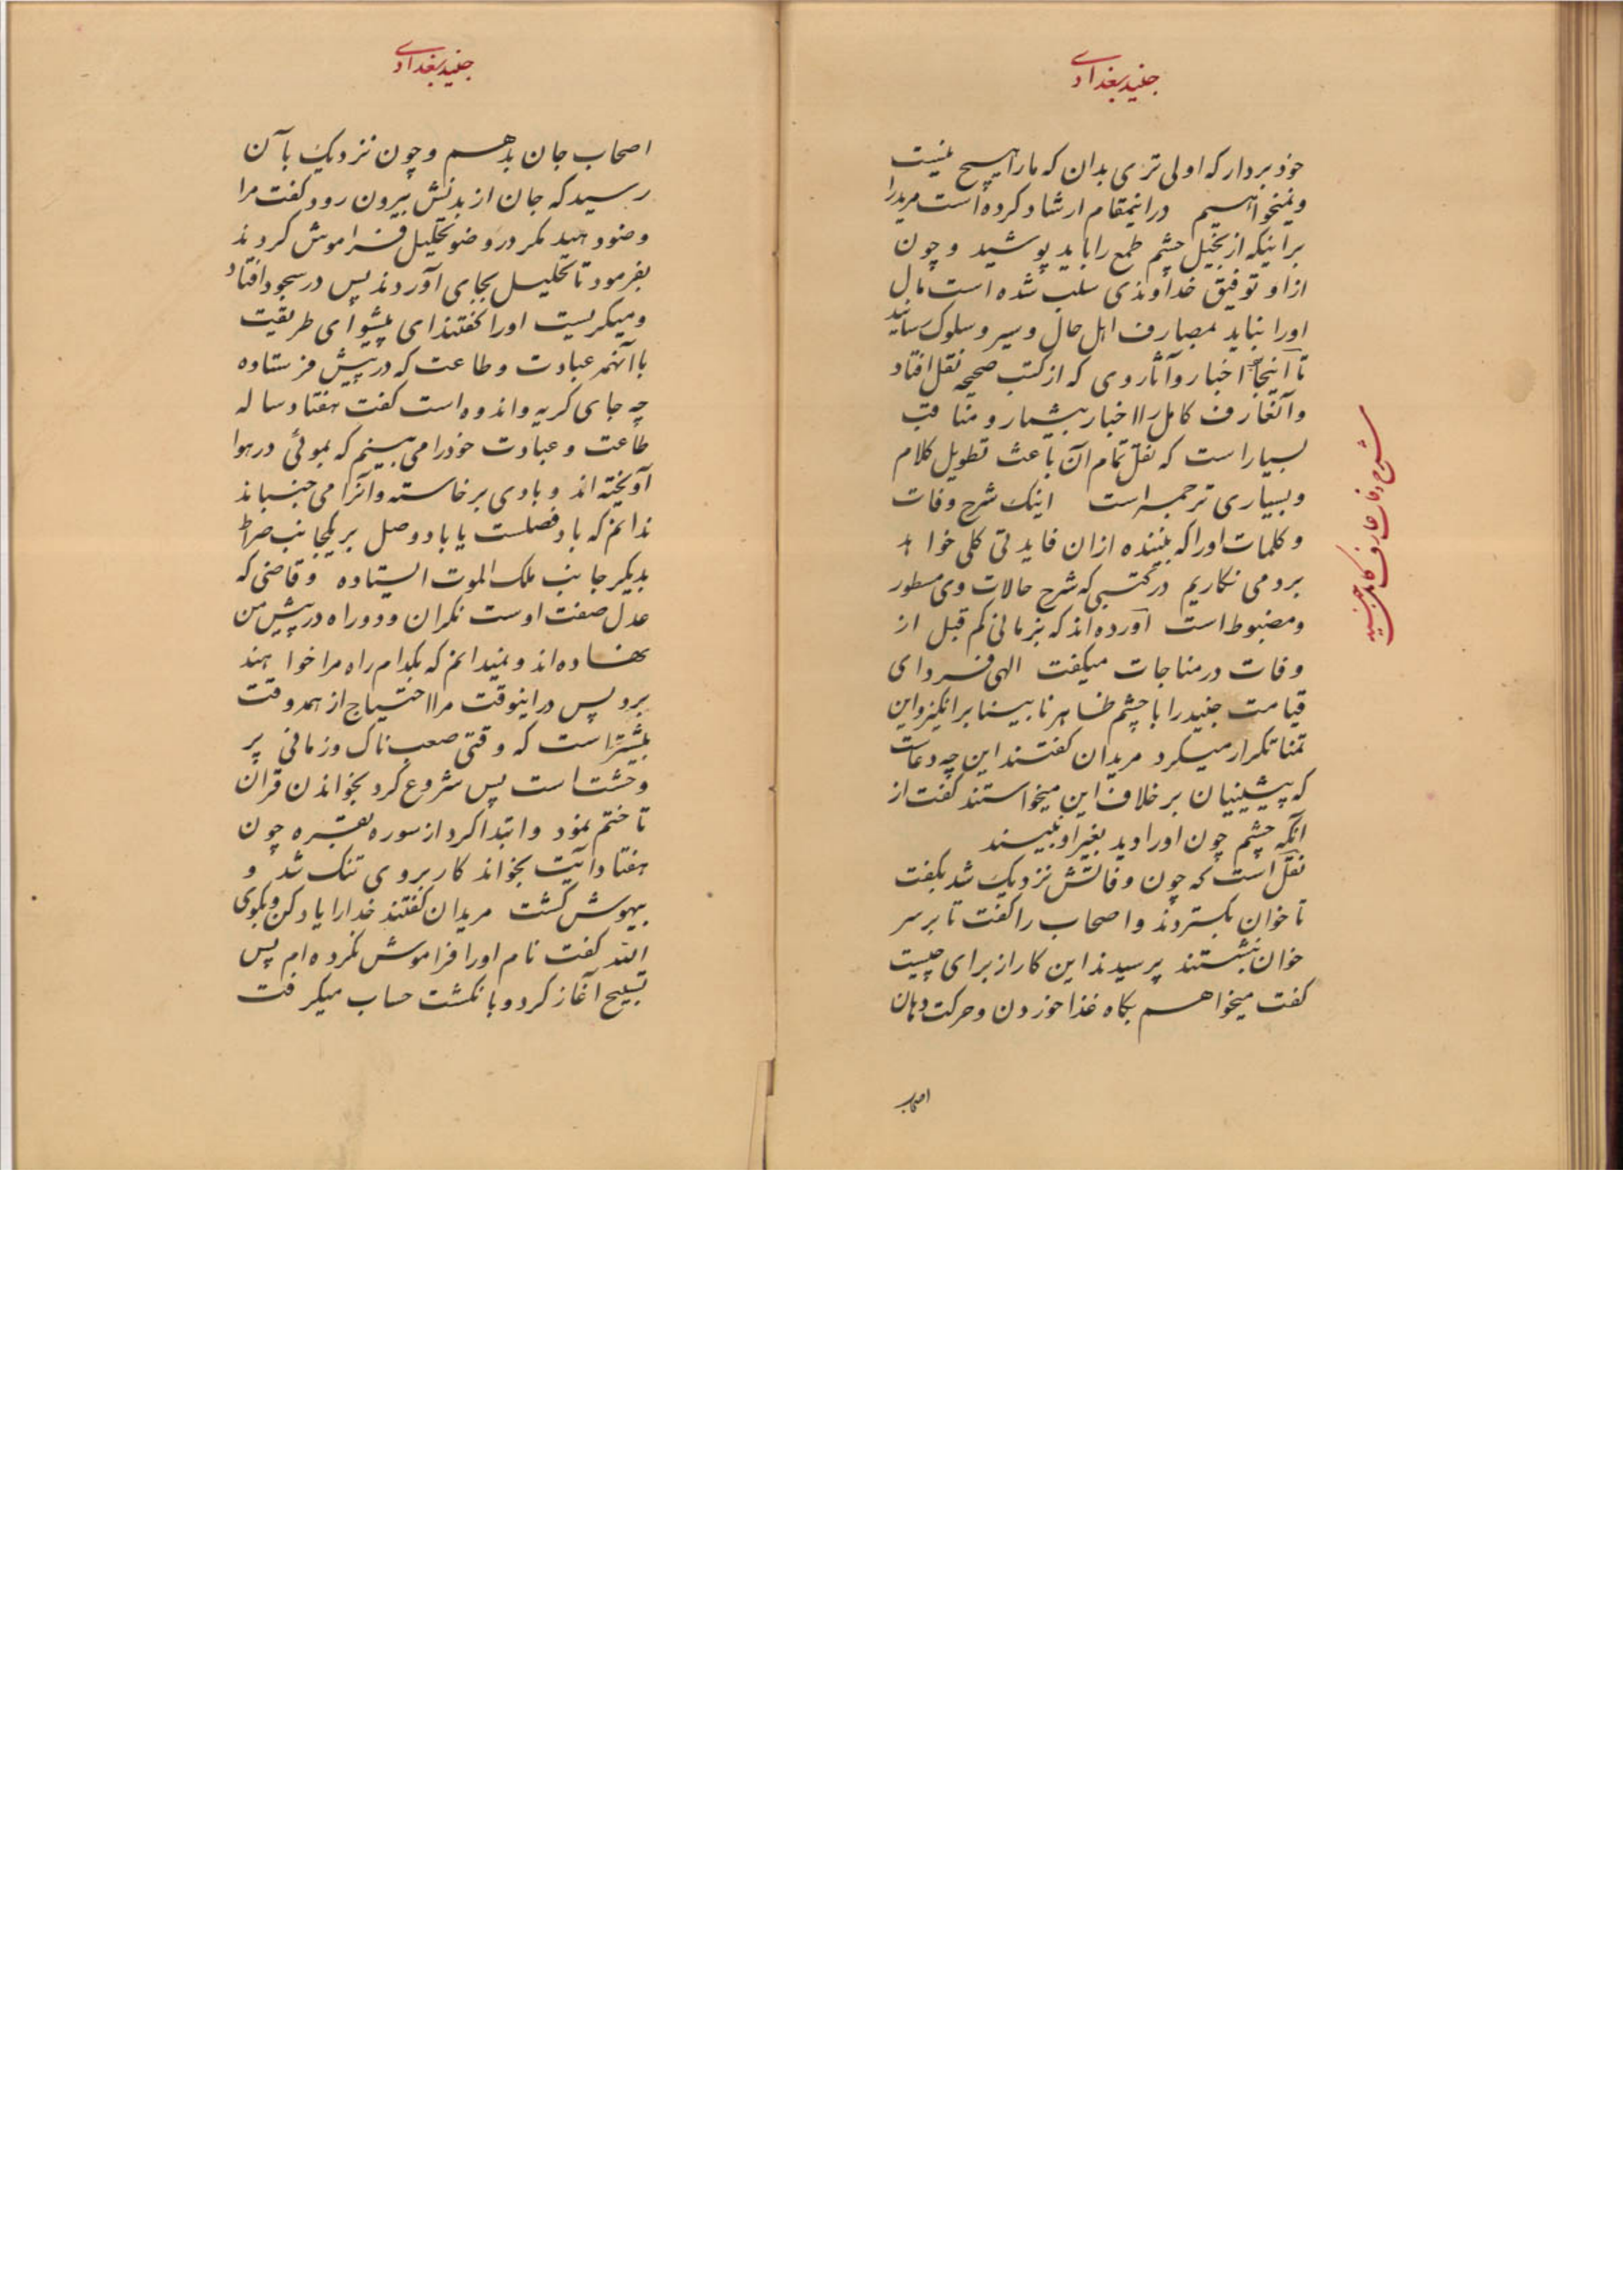 جنید بغدادی
خود بردار که اولی تری بدان که ما را هیچ نیست
و نمیخواهیم در اینمقام ارشاد کرده است مرید را
بر اینکه از بخیل چشم طمع را باید پوشید و چون
از او توفیق خداوندی سلب شده است مال
او را نباید بمصارف اهل حال و سیر و سلوک رسانید
تا اینجا اخبار و آثار وی که از کتب صحیحه نقل افتاد
و آنعارف کامل را اخبار بیشمار و مناقب
بسیار است که نقل تمام آن باعث تطویل کلام
و بسیاری ترجمه است اینک شرح وفات
و کلمات او را که بیننده ازان فایدتی کلی خواهد
برد می نکاریم در کتبی که شرح حالات وی مسطور
و مضبوط است آورده اند که بزمانی کم قبل از
وفات در مناجات میکفت الهی فردای
قیامت جنید را با چشم ظاهر نابینا برانکیز و این
تمنا تکرار میکرد مریدان کفتند این چه دعاست
که پیشینیان بر خلاف این میخواستند کفت از
آنکه چشم چون او را دید بغیر او نبیند
نقل است که چون وفاتش نزدیک شد بکفت
تا خوان بکستردند و اصحاب را کفت تا بر سر
خوان نشستند پرسیدند این کار از برای چیست
کفت میخواهم بکاه غذا خوردن و حرکت دهان
اصحاب
شرح وفات عارف کامل جنید
جنید بغدادی
اصحاب جان بدهم و چون نزدیک با آن
رسید که جان از بدنش بیرون رود کفت مرا
وضو دهید مکر در وضو تخلیل فراموش کردند
بفرمود تا تخلیل بجای آوردند پس در سجود افتاد
و میکریست او را کفتند ای پیشوای طریقت
با آنهمه عبادت و طاعت که در پیش فرستاده
چه جای کریه و اندوه است کفت هفتاد ساله
طاعت و عبادت خود را می بینم که بموئی در هوا
آویخته اند و بادی برخاسته و آنرا می جنباند
ندانم که باد فصلست یا باد وصل بر یکجانب صراط
بدیکر جانب ملک الموت ایستاده و قاضی که
عدل صفت اوست نکران و دو راه در پیش من
نهاده اند و نمیدانم که بکدام راه مرا خواهند
برد پس در اینوقت مرا احتیاج از همه وقت
بیشتر است که وقتی صعب ناک و زمانی پر
وحشت است پس شروع کرد بخواندن قران
تا ختم نمود و ابتدا کرد از سوره بقره چون
هفتاد آیت بخواند کار بر وی تنک شد و
بیهوش کشت مریدان کفتند خدا را یاد کن و بکوی
الله کفت نام او را فراموش نکرده ام پس
تسبیح آغاز کرد و بانکشت حساب میکرفت